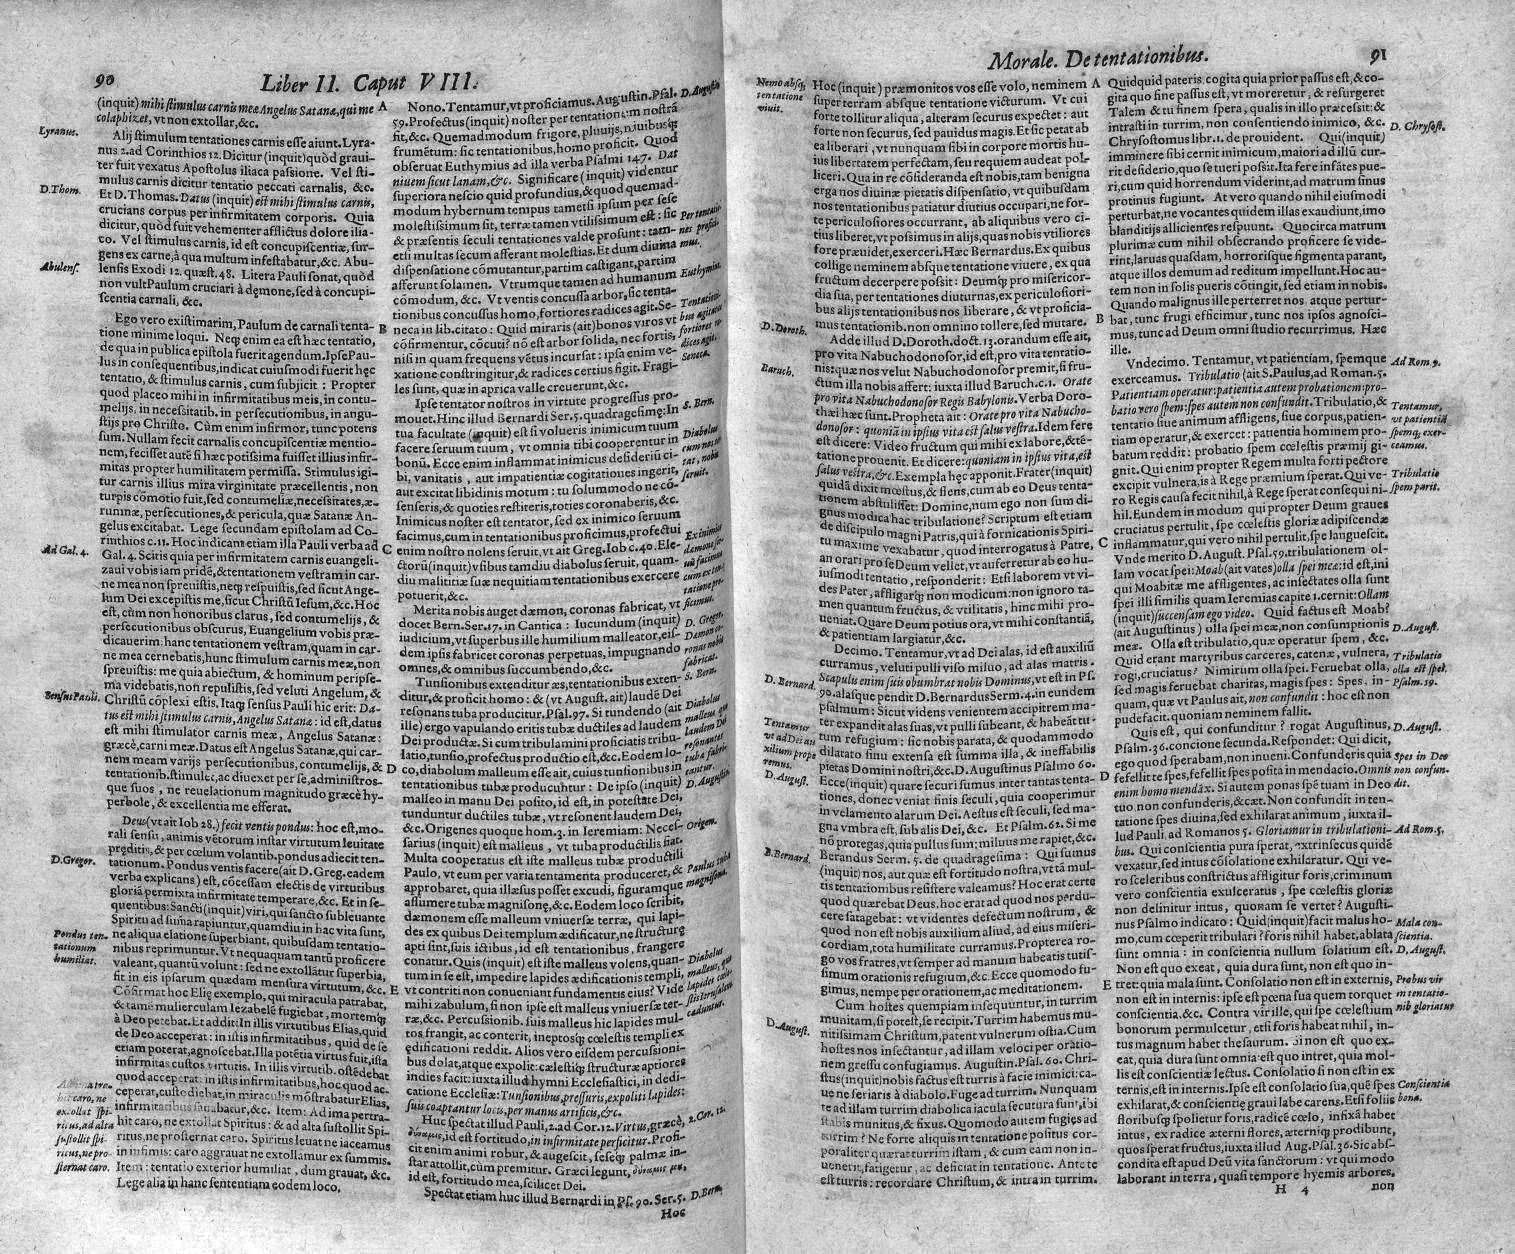 90
Liber II. Caput VIII.
Lyranus.
D. Thom.
Abulens.
Ad Gal. 4.
Sensus Pauli.
D. Gregor.
Pondus ten-
tationum
humiliat.
(inquit) mihi stimulus carnis meæ Angelus Satanæ, qui me
colaphizet, vt non extollar, &c.
Alij stimulum tentationes carnis esse aiunt. Lyra-
nus 2. ad Corinthios 12. Dicitur (inquit) quòd graui-
ter fuit vexatus Apostolus iliaca passione. Vel sti-
mulus carnis dicitur tentatio peccati carnalis, &c.
Et D. Thomas. Datus (inquit) est mihi stimulus carnis,
crucians corpus per infirmitatem corporis. Quia
dicitur, quòd fuit vehementer afflictus dolore ilia-
co. Vel stimulus carnis, id est concupiscentiæ, sur-
gens ex carne, à qua multum infestabatur, &c. Abu-
lensis Exodi 12. quæst. 48. Litera Pauli sonat, quòd
non vult Paulum cruciari à dęmone, sed à concupi-
scentia carnali, &c.
Ego vero existimarim, Paulum de carnali tenta-
tione minime loqui. Neq; enim ea est hæc tentatio,
de qua in publica epistola fuerit agendum. Ipse Pau-
lus in consequentibus, indicat cuiusmodi fuerit hęc
tentatio, & stimulus carnis, cum subjicit : Propter
quod placeo mihi in infirmitatibus meis, in contu-
melijs, in necessitatib. in persecutionibus, in angu-
stijs pro Christo. Cùm enim infirmor, tunc potens
sum. Nullam fecit carnalis concupiscentiæ mentio-
nem, fecisset autē si hæc potissima fuisset illius infir-
mitas propter humilitatem permissa. Stimulus igi-
tur carnis illius mira virginitate præcellentis, non
turpis cōmotio fuit, sed contumeliæ, necessitates, æ-
rumnæ, persecutiones, & pericula, quæ Satanæ An-
gelus excitabat. Lege secundam epistolam ad Co-
rinthios c.11. Hoc indicam etiam illa Pauli verba ad
Gal. 4. Scitis quia per infirmitatem carnis euangeli-
zaui vobis iam pridē, & tentationem vestram in car-
ne mea non spreuistis, neq; respuistis, sed sicut Ange-
lum Dei excepistis me, sicut Christū Iesum, &c. Hoc
est, cùm non honoribus clarus, sed contumelijs, &
persecutionibus obscurus, Euangelium vobis præ-
dicauerim: hanc tentationem vestram, quam in car-
ne mea cernebatis, hunc stimulum carnis meæ, non
spreuistis: me quia abiectum, & hominum peripse-
ma videbatis, non repulistis, sed veluti Angelum, &
Christū cōplexi estis. Itaq; sensus Pauli hic erit: Da-
tus est mihi stimulus carnis, Angelus Satanæ : id est, datus
est mihi stimulator carnis meæ, Angelus Satanæ:
græcè, carni meæ. Datus est Angelus Satanæ, qui car-
nem meam varijs persecutionibus, contumelijs, &
tentationib. stimulet, ac diuexet per se, administros-
que suos, ne reuelationum magnitudo græcè hy-
perbole, & excellentia me efferat.
Deus (vt ait Iob 28.) fecit ventis pondus: hoc est, mo-
rali sensu, animis vētorum instar virtutum leuitate
pręditis, & per cœlum volantib. pondus adiecit ten-
tationum. Pondus ventis facere (ait D. Greg. eadem
verba explicans) est, cōcessam electis de virtutibus
gloriā permixta infirmitate temperare, &c. Et in se-
quentibus: Sancti (inquit) viri, qui sancto subleuante
Spiritu ad sūma rapiuntur, quamdiu in hac vita sunt,
ne aliqua elatione superbiant, quibusdam tentatio-
nibus reprimuntur. Vt nequaquam tantū proficere
valeant, quantū volunt: sed ne extollātur superbia,
fit in eis ipsarum quædam mensura virtutum, &c.
Cōfirmat hoc Elię exemplo, qui miracula patrabat,
& tamē mulierculam Iezabelē fugiebat, mortemq;
à Deo petebat. Et addit: In illis virtutibus Elias, quid
de Deo acceperat : in istis infirmitatibus, quid de se
etiam poterat, agnoscebat. Illa potētia virtus fuit, ista
infirmitas custos virtutis. In illis virtutib. ostēdebat
quod acceperat: in istis infirmitatibus, hoc quod ac-
ceperat, custodiebat, in miraculis mōstrabatur Elias,
infirmitatibus seruabatur, &c. Item: Ad ima pertra-
hit caro, ne extollat Spiritus: & ad alta sustollit Spi-
ritus, ne prosternat caro. Spiritus leuat ne iaceamus
in infimis: caro aggrauat ne extollamur ex summis.
Item: tentatio exterior humiliat, dum grauat, &c.
Lege alia in hanc sententiam eodem loco.
A
B
C
D
E
Nono. Tentamur, vt proficiamus. Augustin. Psal.
59. Profectus (inquit) noster per tentationem nostrā
fit, &c. Quemadmodum frigore, pluuijs, niuibusq;
frumētum: sic tentationibus, homo proficit. Quod
obseruat Euthymius ad illa verba Psalmi 147. Dat
niuem sicut lanam, &c. Significare (inquit) videntur
superiora nescio quid profundius, & quod quemad-
modum hybernum tempus tametsi ipsum per sese
molestissimum sit, terræ tamen vtilissimum est: sic
& præsentis seculi tentationes valde prosunt: tam-
etsi multas secum afferant molestias. Et dum diuina
dispensatione cōmutantur, partim castigant, partim
afferunt solamen. Vtrumque tamen ad humanum
cōmodum, &c. Vt ventis concussa arbor, sic tenta-
tionibus concussus homo, fortiores radices agit. Se-
neca in lib. citato : Quid miraris (ait) bonos viros vt
cōfirmentur, cōcuti? nō est arbor solida, nec fortis,
nisi in quam frequens vētus incursat: ipsa enim ve-
xatione constringitur, & radices certius figit. Fragi-
les sunt, quæ in aprica valle creuerunt, &c.
Ipse tentator nostros in virtute progressus pro-
mouet. Hinc illud Bernardi Ser. 5. quadragesimę: In
tua facultate (inquit) est si volueris inimicum tuum
facere seruum tuum, vt omnia tibi cooperentur in
bonū. Ecce enim inflammat inimicus desideriū ci-
bi, vanitatis, aut impatientiæ cogitationes ingerit,
aut excitat libidinis motum : tu solummodo ne cō-
senseris, & quoties restiteris, toties coronaberis, &c.
Inimicus noster est tentator, sed ex inimico seruum
facimus, cum in tentationibus proficimus, profectui
enim nostro nolens seruit, vt ait Greg. Iob c. 40. Ele-
ctorū (inquit) vsibus tamdiu diabolus seruit, quam-
diu malitiæ suæ nequitiam tentationibus exercere
potuerit, &c.
Merita nobis auget dæmon, coronas fabricat, vt
docet Bern. Ser. 17. in Cantica : Iucundum (inquit)
iudicium, vt superbus ille humilium malleator, eis-
dem ipsis fabricet coronas perpetuas, impugnando
omnes, & omnibus succumbendo, &c.
Tunsionibus extenditur æs, tentationibus exten-
ditur, & proficit homo : & (vt August. ait) laudē Dei
resonans tuba producitur. Psal. 97. Si tundendo (ait
ille) ergo vapulando eritis tubæ ductiles ad laudem
Dei productæ. Si cum tribulamini proficiatis tribu-
latio, tunsio, profectus productio est, &c. Eodem lo-
co, diabolum malleum esse ait, cuius tunsionibus in
tentationibus tubæ producuntur : De ipso (inquit)
malleo in manu Dei posito, id est, in potestate Dei,
tunduntur ductiles tubæ, vt resonent laudem Dei,
&c. Origenes quoque hom. 3. in Ieremiam: Neces-
sarius (inquit) est malleus, vt tuba productilis fiat.
Multa cooperatus est iste malleus tubæ productili
Paulo, vt eum per varia tentamenta produceret, &
approbaret, quia illæsus posset excudi, figuramque
assumere tubæ magnisonę, &c. Eodem loco scribit,
dæmonem esse malleum vniuersæ terræ, qui lapi-
des ex quibus Dei templum ædificatur, ne structurę
apti sint, suis ictibus, id est tentationibus, frangere
conatur. Quis (inquit) est iste malleus volens, quan-
tum in se est, impedire lapides ædificationis templi,
vt contriti non conueniant fundamentis eius? Vide
mihi zabulum, si non ipse est malleus vniuersæ ter-
ræ, &c. Percussionib. suis malleus hic lapides mul-
tos frangit, ac conterit, ineptosq; cœlestis templi ex
ędificationi reddit. Alios vero eisdem percussioni-
bus dolat, atque expolit: cælestiq; structuræ aptiores
indies facit: iuxta illud hymni Ecclesiastici, in dedi-
catione Ecclesiæ: Tunsionibus, pressuris, expoliti lapides:
suis coaptantur locis, per manus artificis, &c.
Huc spectat illud Pauli, 2. ad Cor. 12. Virtus, græcè,
δύναμις, id est fortitudo, in infirmitate perficitur. Profi-
cit enim animi robur, & augescit, seseq; palmæ in-
star attollit, cùm premitur. Græci legunt, δύναμις μυ,
id est, fortitudo mea, scilicet Dei.
Spectat etiam huc illud Bernardi in Ps. 90. Ser. 5.
Hoc
D. Augustin
Euthymius.
Seneca.
S. Bern.
D. Greger.
S. Bern.
D. Augustin
Origen.
2. Cor. 12.
D. Bern.
Morale. De tentationibus.
91
Nemo absq;
tentatione
viuit.
D. Doroth.
Baruch.
D. Bernard.
Tentamur
vt ad Dei au
xilium prope
remus.
D. August.
B. Bernard.
D. August.
Hoc (inquit) præmonitos vos esse volo, neminem
super terram absque tentatione victurum. Vt cui
forte tollitur aliqua, alteram securus expectet : aut
forte non securus, sed pauidus magis. Et sic petat ab
ea liberari, vt nunquam sibi in corpore mortis hu-
ius libertatem perfectam, seu requiem audeat pol-
liceri. Qua in re cōsideranda est nobis, tam benigna
erga nos diuinæ pietatis dispensatio, vt quibusdam
nos tentationibus patiatur diutius occupari, ne for-
te periculosiores occurrant, ab aliquibus vero ci-
tius liberet, vt possimus in alijs, quas nobis vtiliores
fore præuidet, exerceri. Hæc Bernardus. Ex quibus
collige neminem absque tentatione viuere, ex qua
fructum decerpere possit : Deumq; pro misericor-
dia sua, per tentationes diuturnas, ex periculosiori-
bus alijs tentationibus nos liberare, & vt proficia-
mus tentationib. non omnino tollere, sed mutare.
Adde illud D. Doroth. doct. 13. orandum esse ait,
pro vita Nabuchodonosor, id est, pro vita tentatio-
nis: quæ nos velut Nabuchodonosor premit, si fru-
ctum illa nobis affert: iuxta illud Baruch. c. 1. Orate
pro vita Nabuchodonosor Regis Babylonis. Verba Doro-
thæi hæc sunt. Propheta ait : Orate pro vita Nabucho-
donosor: quoniā in ipsius vita est salus vestra. Idem fere
est dicere: Video fructum qui mihi ex labore, & tē-
tatione prouenit. Et dicere: quoniam in ipsius vita, est
salus vestra, &c. Exempla hęc apponit. Frater (inquit)
quidā dixit mœstus, & flens, cum ab eo Deus tenta-
tionem abstulisset: Domine, num ego non sum di-
gnus modica hac tribulatione? Scriptum est etiam
de discipulo magni Patris, qui à fornicationis Spiri-
tu maxime vexabatur, quod interrogatus à Patre,
an orari pro se Deum vellet, vt auferretur ab eo hu-
iusmodi tentatio, responderit: Etsi laborem vt vi-
des Pater, affligarq; non modicum: non ignoro ta-
men quantum fructus, & vtilitatis, hinc mihi pro-
ueniat. Quare Deum potius ora, vt mihi constantiā,
& patientiam largiatur, &c.
Decimo. Tentamur, vt ad Dei alas, id est auxiliū
curramus, veluti pulli viso miluo, ad alas matris.
Scapulis enim suis obumbrat nobis Dominus, vt est in Ps.
90. alasque pendit D. Bernardus Serm. 4. in eundem
psalmum: Sicut videns venientem accipitrem ma-
ter expandit alas suas, vt pulli subeant, & habeāt tu-
tum refugium : sic nobis parata, & quodammodo
dilatato sinu extensa est summa illa, & ineffabilis
pietas Domini nostri, &c. D. Augustinus Psalmo 60.
Ecce (inquit) quare securi sumus inter tantas tenta-
tiones, donec veniat finis seculi, quia cooperimur
in velamento alarum Dei. Aestus est seculi, sed ma-
gna vmbra est, sub alis Dei, &c. Et Psalm. 62. Si me
nō protegas, quia pullus sum; miluus me rapiet, &c.
Berandus Serm. 5. de quadragesima : Qui sumus
(inquit) nos, aut quæ est fortitudo nostra, vt tā mul-
tis tentationibus resistere valeamus? Hoc erat certe
quod quærebat Deus. hoc erat ad quod nos perdu-
cere satagebat: vt videntes defectum nostrum, &
quod non est nobis auxilium aliud, ad eius miseri-
cordiam, tota humilitate curramus. Propterea ro-
go vos fratres, vt semper ad manum habeatis tutis-
simum orationis refugium, &c. Ecce quomodo fu-
gimus, nempe per orationem, ac meditationem.
Cum hostes quempiam insequuntur, in turrim
munitam, si potest, se recipit. Turrim habemus mu-
nitissimam Christum, patent vulnerum ostia. Cum
hostes nos insectantur, ad illam veloci per oratio-
nem gressu confugiamus. Augustin. Psal. 60. Chri-
stus (inquit) nobis factus est turris à facie inimici: ca-
ue ne feriaris à diabolo. Fuge ad turrim. Nunquam
te ad illam turrim diabolica iacula secutura sunt, ibi
stabis munitus, & fixus. Quomodo autem fugies ad
turrim? Ne forte aliquis in tentatione positus cor-
poraliter quærat turrim istam, & cum eam non in-
uenerit, fatigetur, ac deficiat in tentatione. Ante te
est turris: recordare Christum, & intra in turrim.
A
B
C
D
E
Quidquid pateris, cogita quia prior passus est, & co-
gita quo fine passus est, vt moreretur, & resurgeret
Talem & tu finem spera, qualis in illo præcessit: &
intrasti in turrim, non consentiendo inimico, &c.
Chrysostomus libr. 1. de prouident. Qui (inquit)
imminere sibi cernit inimicum, maiori ad illū cur-
rit desiderio, quo se tueri possit. Ita fere infātes pue-
ri, cum quid horrendum viderint, ad matrum sinus
protinus fugiunt. At vero quando nihil eiusmodi
perturbat, ne vocantes quidem illas exaudiunt, imo
blanditijs allicientes respuunt. Quocirca matrum
plurimæ cum nihil obsecrando proficere se vide-
rint, laruas quasdam, horrorisque figmenta parant,
atque illos demum ad reditum impellunt. Hoc au-
tem non in solis pueris cōtingit, sed etiam in nobis.
Quando malignus ille perterret nos, atque pertur-
bat, tunc frugi efficimur, tunc nos ipsos agnosci-
mus, tunc ad Deum omni studio recurrimus. Hæc
ille.
Vndecimo. Tentamur, vt patientiam, spemque
exerceamus. Tribulatio (ait S. Paulus, ad Roman. 5.
Patientiam operatur: patientia autem probationem: pro-
batio vero spem: spes autem non confundit. Tribulatio, &
tentatio siue animum affligens, siue corpus, patien-
tiam operatur, & exercet: patientia hominem pro-
batum reddit: probatio spem cœlestis præmij gi-
gnit. Qui enim propter Regem multa forti pectore
excipit vulnera, is à Rege præmium sperat. Qui ve-
ro Regis causa fecit nihil, à Rege sperat consequi ni-
hil. Eundem in modum qui propter Deum graues
cruciatus pertulit, spe cœlestis gloriæ adipiscendæ
inflammatur, qui vero nihil pertulit, spe languescit.
Vnde merito D. August. Psal. 59. tribulationem ol-
lam vocat spei: Moab (ait vates) olla spei meæ: id est, ini
qui Moabitæ me affligentes, ac insectates olla sunt
spei illi similis quam Ieremias capite 1. cernit: Ollam
(inquit) succensam ego video. Quid factus est Moab?
(ait Augustinus) olla spei meæ, non consumptionis
meæ. Olla est tribulatio, quæ operatur spem, &c.
Quid erant martyribus carceres, catenæ, vulnera,
rogi, cruciatus? Nimirum olla spei. Feruebat olla,
sed magis feruebat charitas, magis spes: Spes, in-
quam, quæ vt Paulus ait, non confundit : hoc est non
pudefacit. quoniam neminem fallit.
Quis est, qui confunditur? rogat Augustinus,
Psalm. 36. concione secunda. Respondet: Qui dicit,
ego quod sperabam, non inueni. Confunderis quia
fefellit te spes, fefellit spes posita in mendacio. Omnis
enim homo mendāx. Si autem ponas spē tuam in Deo
tuo non confunderis, &cæt. Non confundit in ten-
tatione spes diuina, sed exhilarat animum, iuxta il-
lud Pauli ad Romanos 5. Gloriamur in tribulationi-
bus. Qui conscientia pura sperat, extrinsecus quidē
vexatur, sed intus cōsolatione exhilaratur. Qui ve-
ro sceleribus constrictus affligitur foris, criminum
vero conscientia exulceratur, spe cœlestis gloriæ
non delinitur intus, quonam se vertet? Augusti-
nus Psalmo indicato : Quid (inquit) facit malus ho-
mo, cum cœperit tribulari? foris nihil habet, ablata
sunt omnia : in conscientia nullum solatium est.
Non est quo exeat, quia dura sunt, non est quo in-
tret: quia mala sunt. Consolatio non est in externis,
non est in internis: ipse est pœna sua quem torquet
conscientia. &c. Contra vir ille, qui spe cœlestium
bonorum permulcetur, etsi foris habeat nihil, in-
tus magnum habet thesaurum. Si non est quo ex-
eat, quia dura sunt omnia: est quo intret, quia mol-
lis est conscientiæ lectus. Consolatio si non est in ex
ternis, est in internis. Ipse est consolatio sua, quē spes
exhilarat, & conscientię graui labe carens. Etsi folijs
floribusq; spolietur foris, radicē cœlo, infixā habet
intus, ex radice æterni flores, æterniq; prodibunt,
quos sperat fructus, iuxta illud Aug. Psal. 36. Sic abs-
condita est apud Deū vita sanctorum : vt qui modo
laborant in terra, quasi tempore hyemis arbores,
H 4
non
D. Chrysost.
Ad Rom. 9.
Tentamur,
vt patientiā
spemq; exer-
ceamus.
Tribulatio
spem parit.
D. August.
Tribulatio
olla est spei.
Psalm. 59.
D. August.
Spes in Deo
non confun-
dit.
Ad Rom. 5.
Mala con-
scientia.
D. August.
Probus vir
in tentatio-
nib gloriatur
Conscientia
bona.